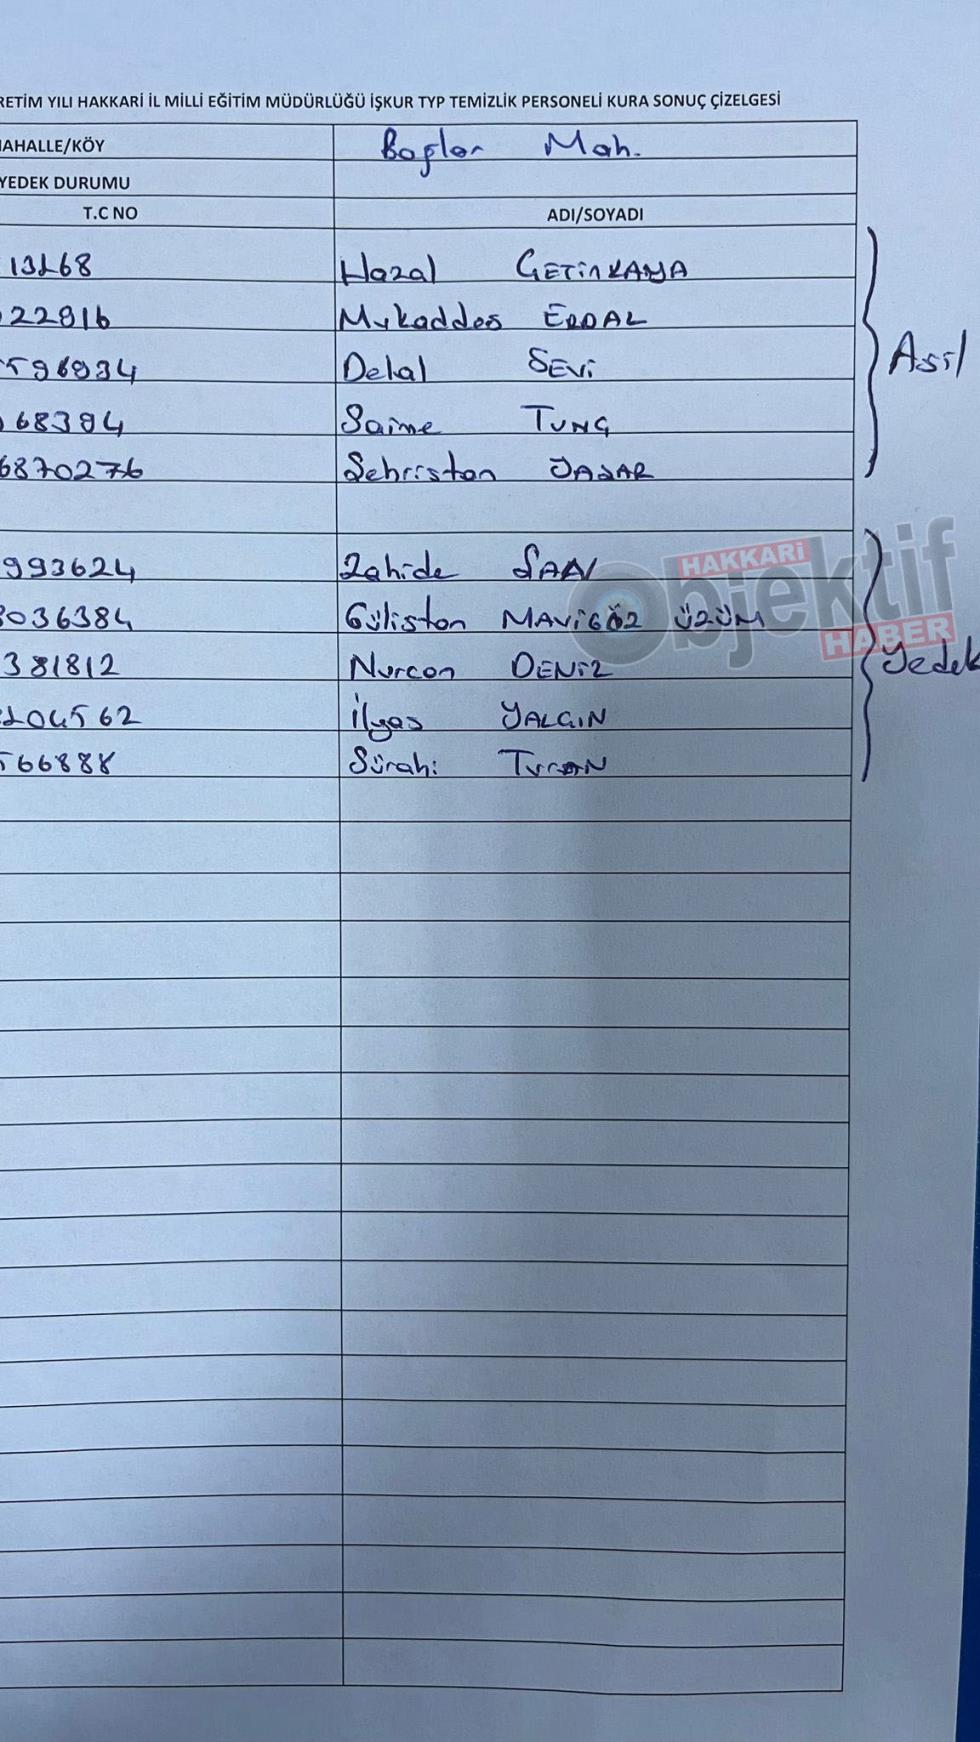 RETİM YILI HAKKARİ İL MİLLİ EĞİTİM MÜDÜRLÜĞÜ İŞKUR TYP TEMİZLİK PERSONELİ KURA SONUÇ ÇİZELGESİ
MAHALLE/KÖY Bağlar Mah.
YEDEK DURUMU
T.C NO ADI/SOYADI
13268 Hazal ÇETİNKAYA
022816 Mukaddes ERDAL
596934 Delal SEVİ
68394 Saime TUNÇ
6870276 Şehristan YAŞAR
Asil
993624 Zahide ŞAN
8036384 Gülistan MAVİGÖZ ÜZÜM
381812 Nurcan DENİZ
204562 İlyas YALÇIN
566888 Sürahi TURAN
Yedek
HAKKARİ
Objektif
HABER